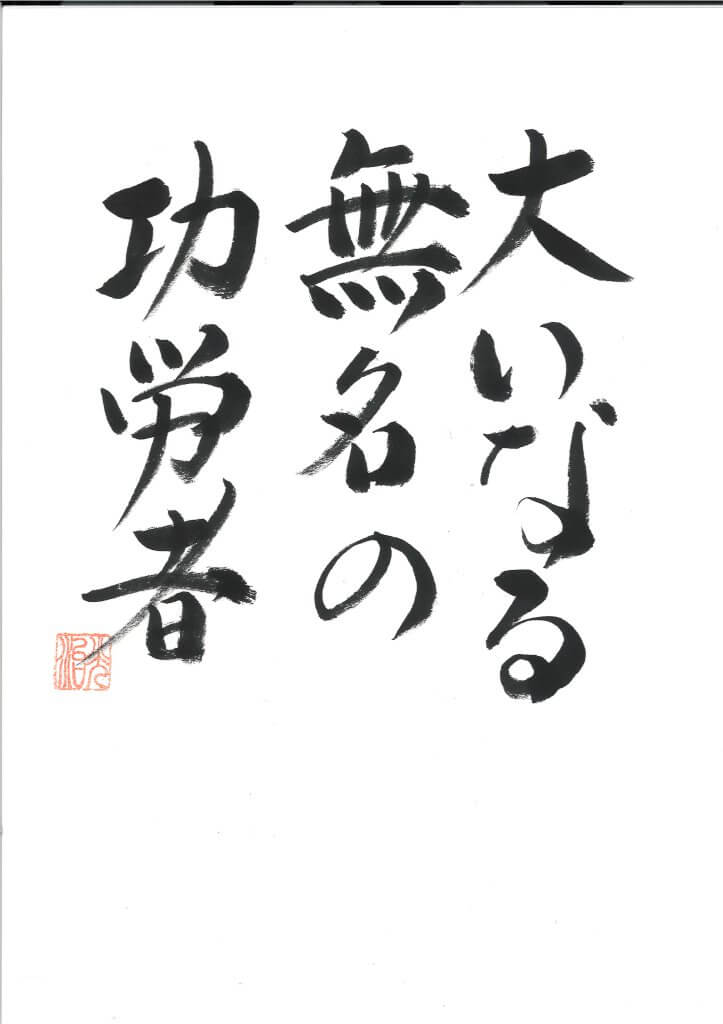 大いなる
無名の
功労者